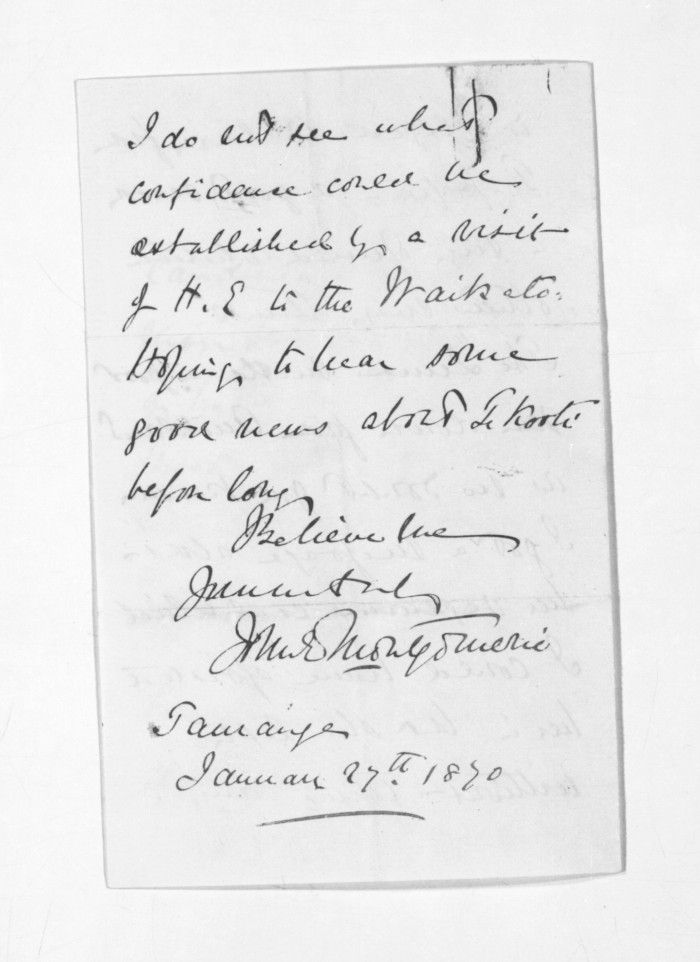 I do not see what
confidence could be
established by a visit
of H.E to the Waikato.
Hoping to hear some
good news about Te Kooti
before long
Believe me
Yours truly
John E Montgomerie
Tauranga
January 27th. 1870